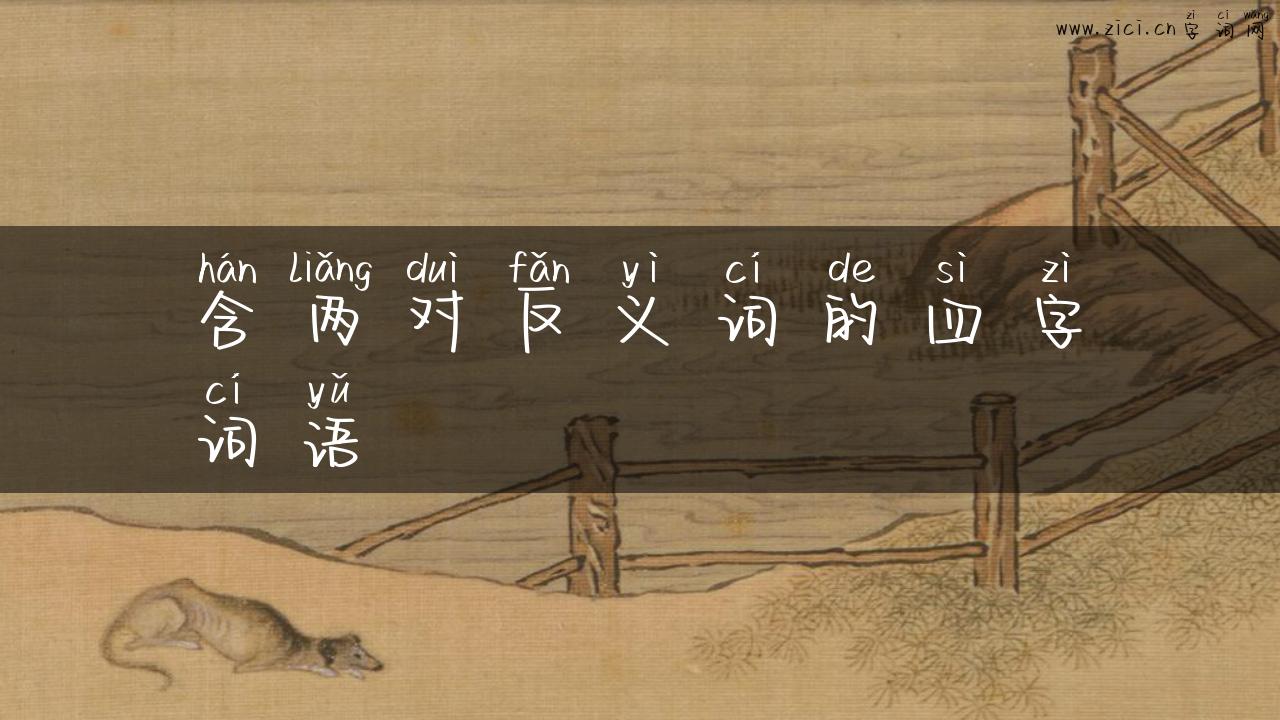 zì cí wǎng
www.zici.cn字词网
hán liǎng duì fǎn yì cí de sì zì
含两对反义词的四字
cí yǔ
词语